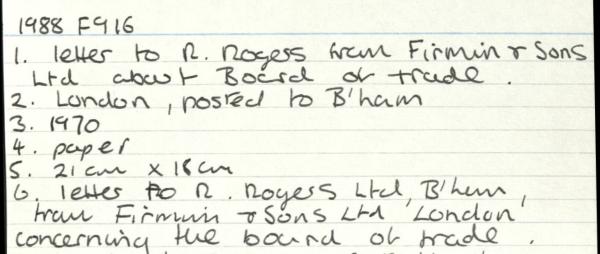 1988 F916
1. letter to R. Rogers from Firmin & Sons
Ltd about Board of trade.
2. London, posted to B'ham
3. 1970
4. paper
5. 21cm x 18cm
6. letter to R. Rogers Ltd, B'ham,
from Firmin & Sons Ltd London,
concerning the board of trade.